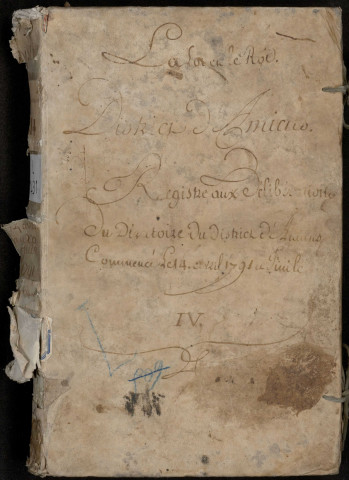 La Loi et le Roi.
District D'Amiens.
Registre aux Délibérations
Du Directoire du District d'Amiens
Commencé Le 14 avril 1791
IV.